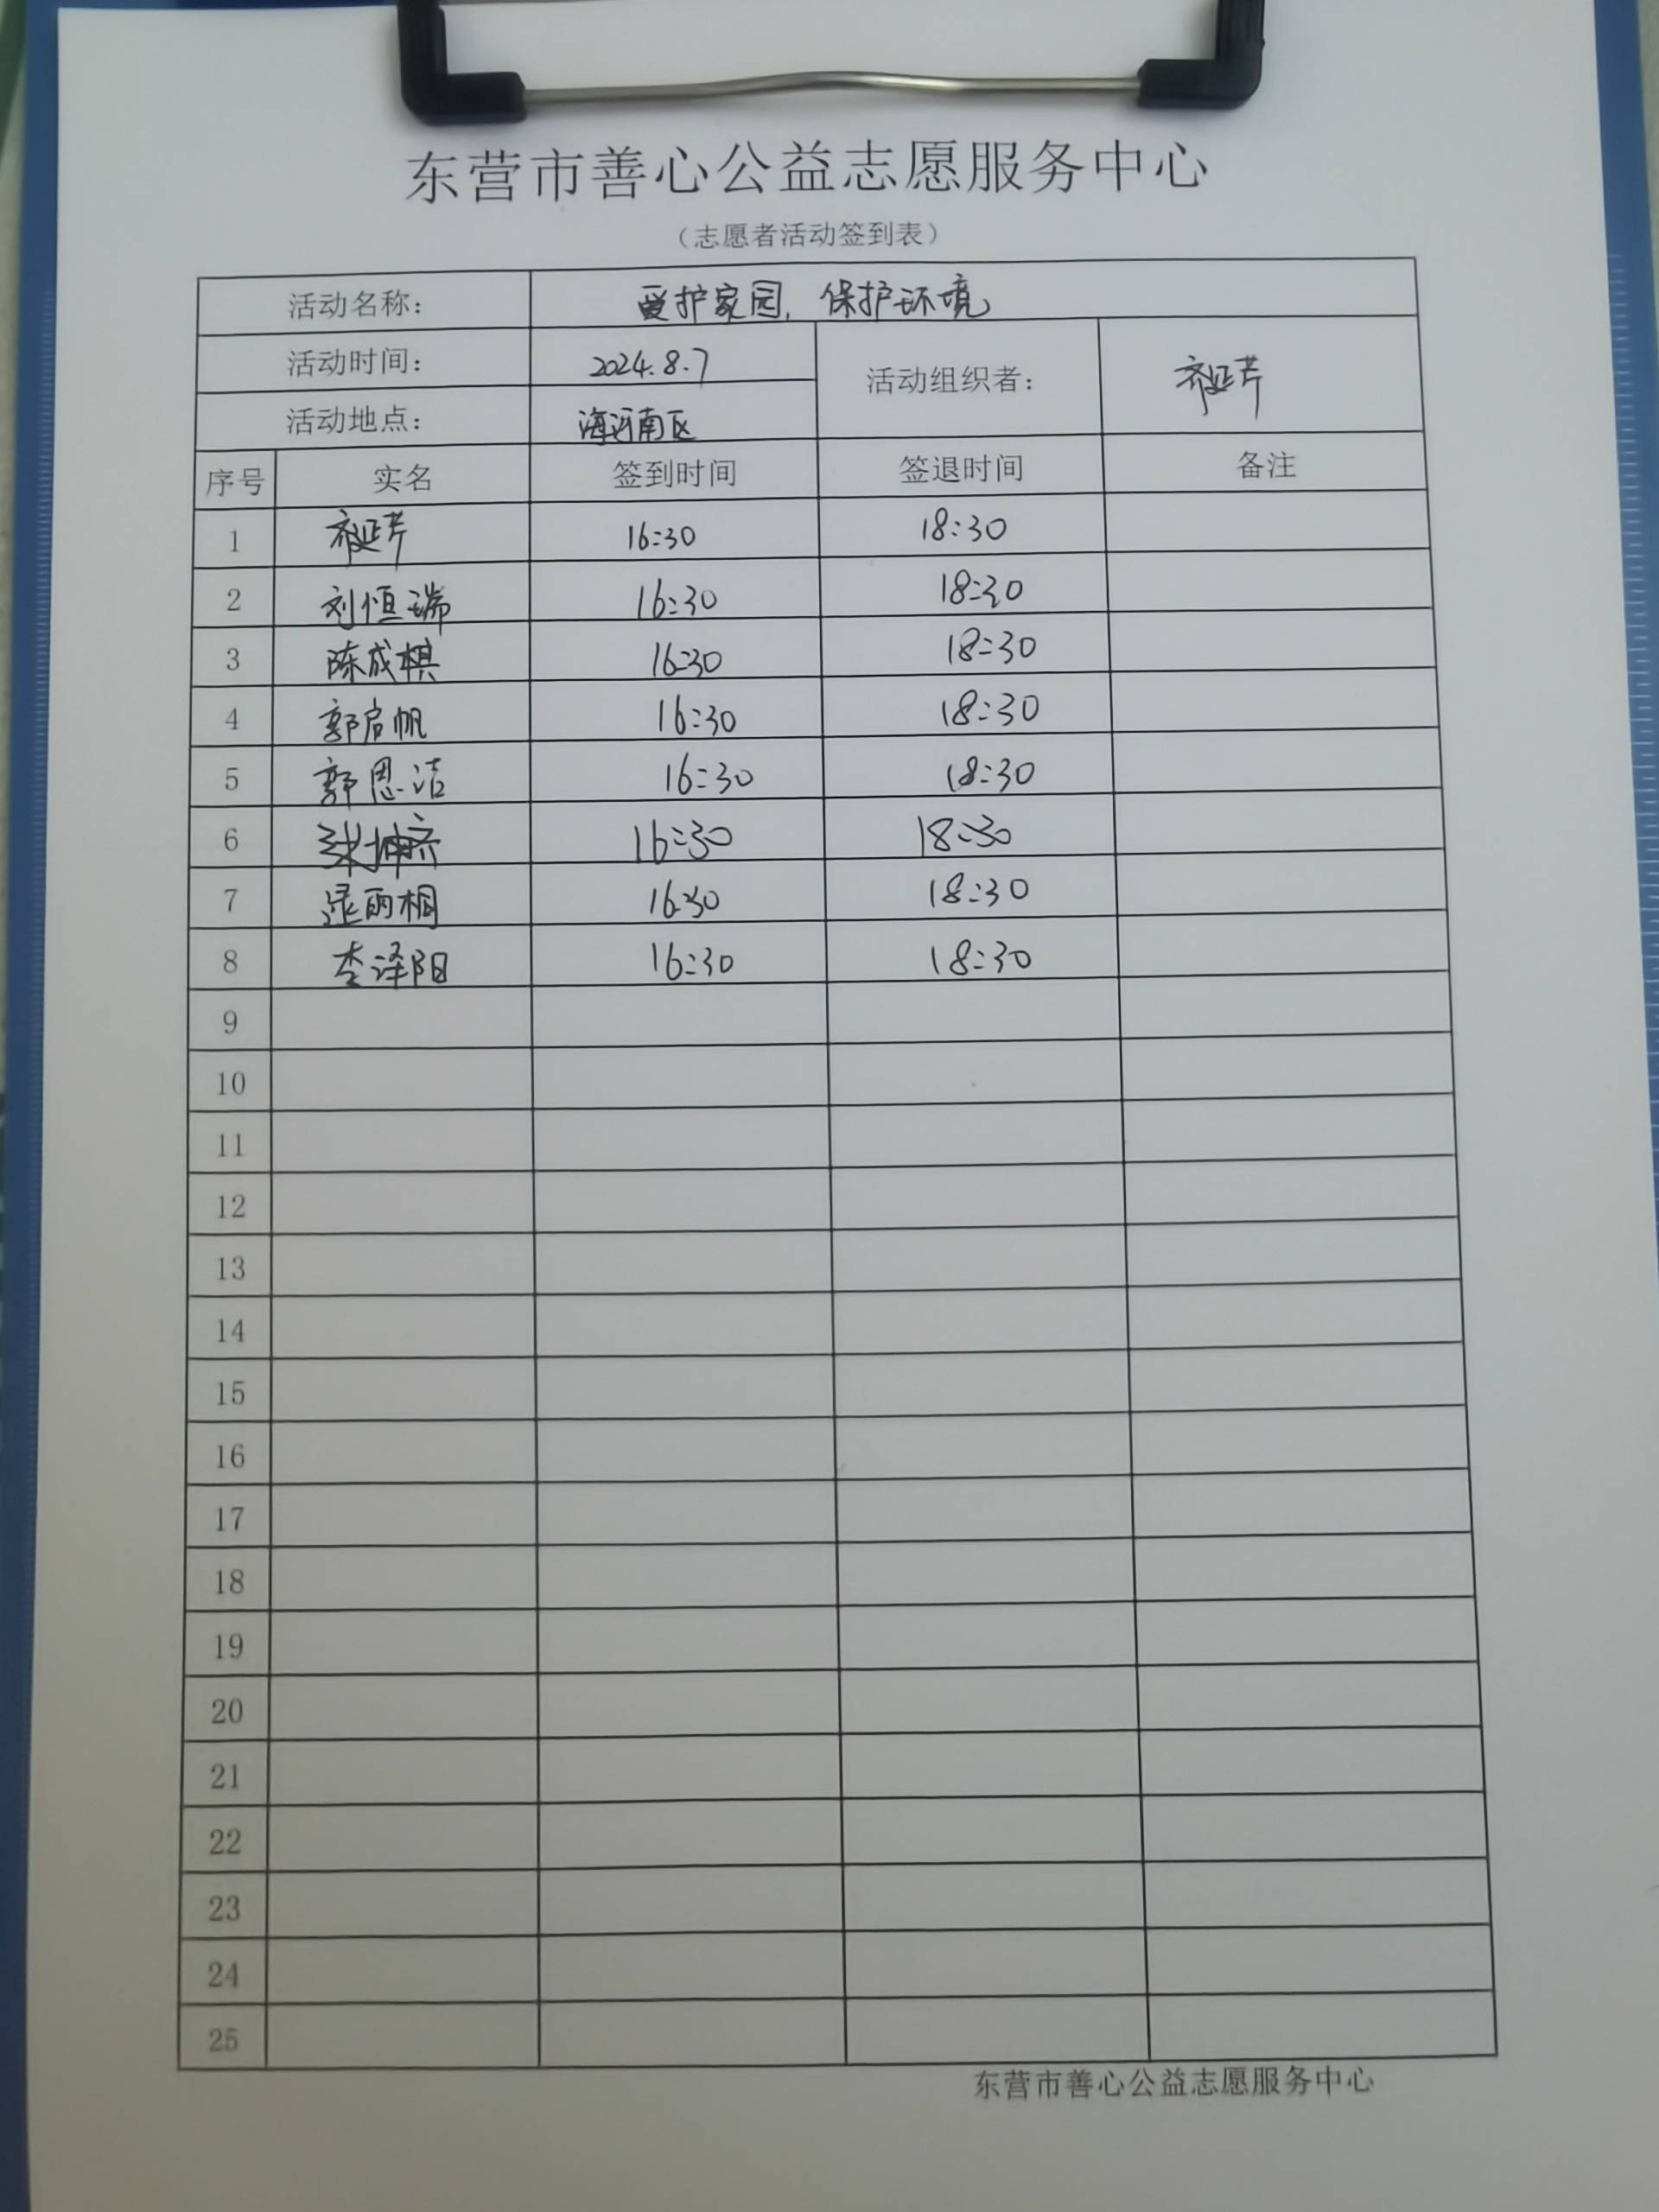 东营市善心公益志愿服务中心
（志愿者活动签到表）
活动名称： 爱护家园，保护环境
活动时间： 2024.8.7 活动组织者： 齐延芹
活动地点： 海河南区
序号 实名 签到时间 签退时间 备注
1 齐延芹 16:30 18:30
2 刘恒瑞 16:30 18:30
3 陈成棋 16:30 18:30
4 郭启帆 16:30 18:30
5 郭恩洁 16:30 18:30
6 16:30 18:30
7 雨桐 16:30 18:30
8 李泽阳 16:30 18:30
9
10
11
12
13
14
15
16
17
18
19
20
21
22
23
24
25
东营市善心公益志愿服务中心